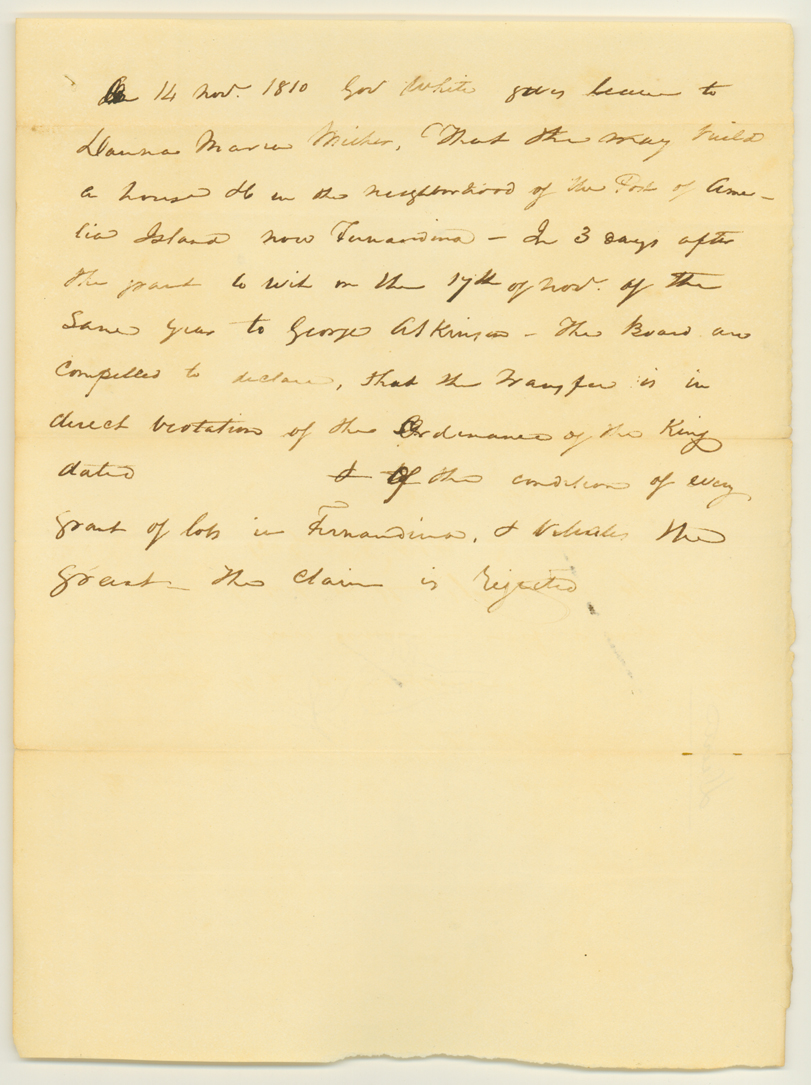 On 14 Nov. 1810 Gov White gives leave to
Donna Maria "That she may build
a house &c in the neighborhood of the Post of Ame-
lia Island now Fernandina – In 3 days after
the grant to wit on the 17th of Nov. of the
Same year to George Atkinson – The Board are
Compelled to declare, that the transfer is in
direct violation of the Ordinance of the King
dated & Of the condition of every
grant of lots in Fernandina, & the
grant – The Claim is Rejected